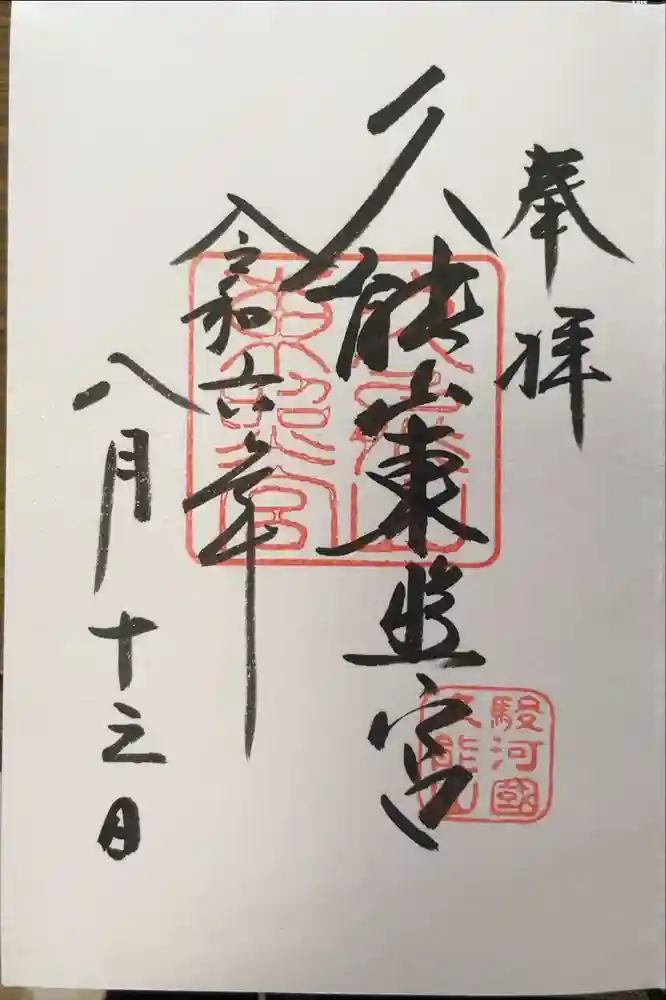 奉拝
久能山東照宮
令和六年
八月十三日
久能山
東照宮
駿河國
久能山